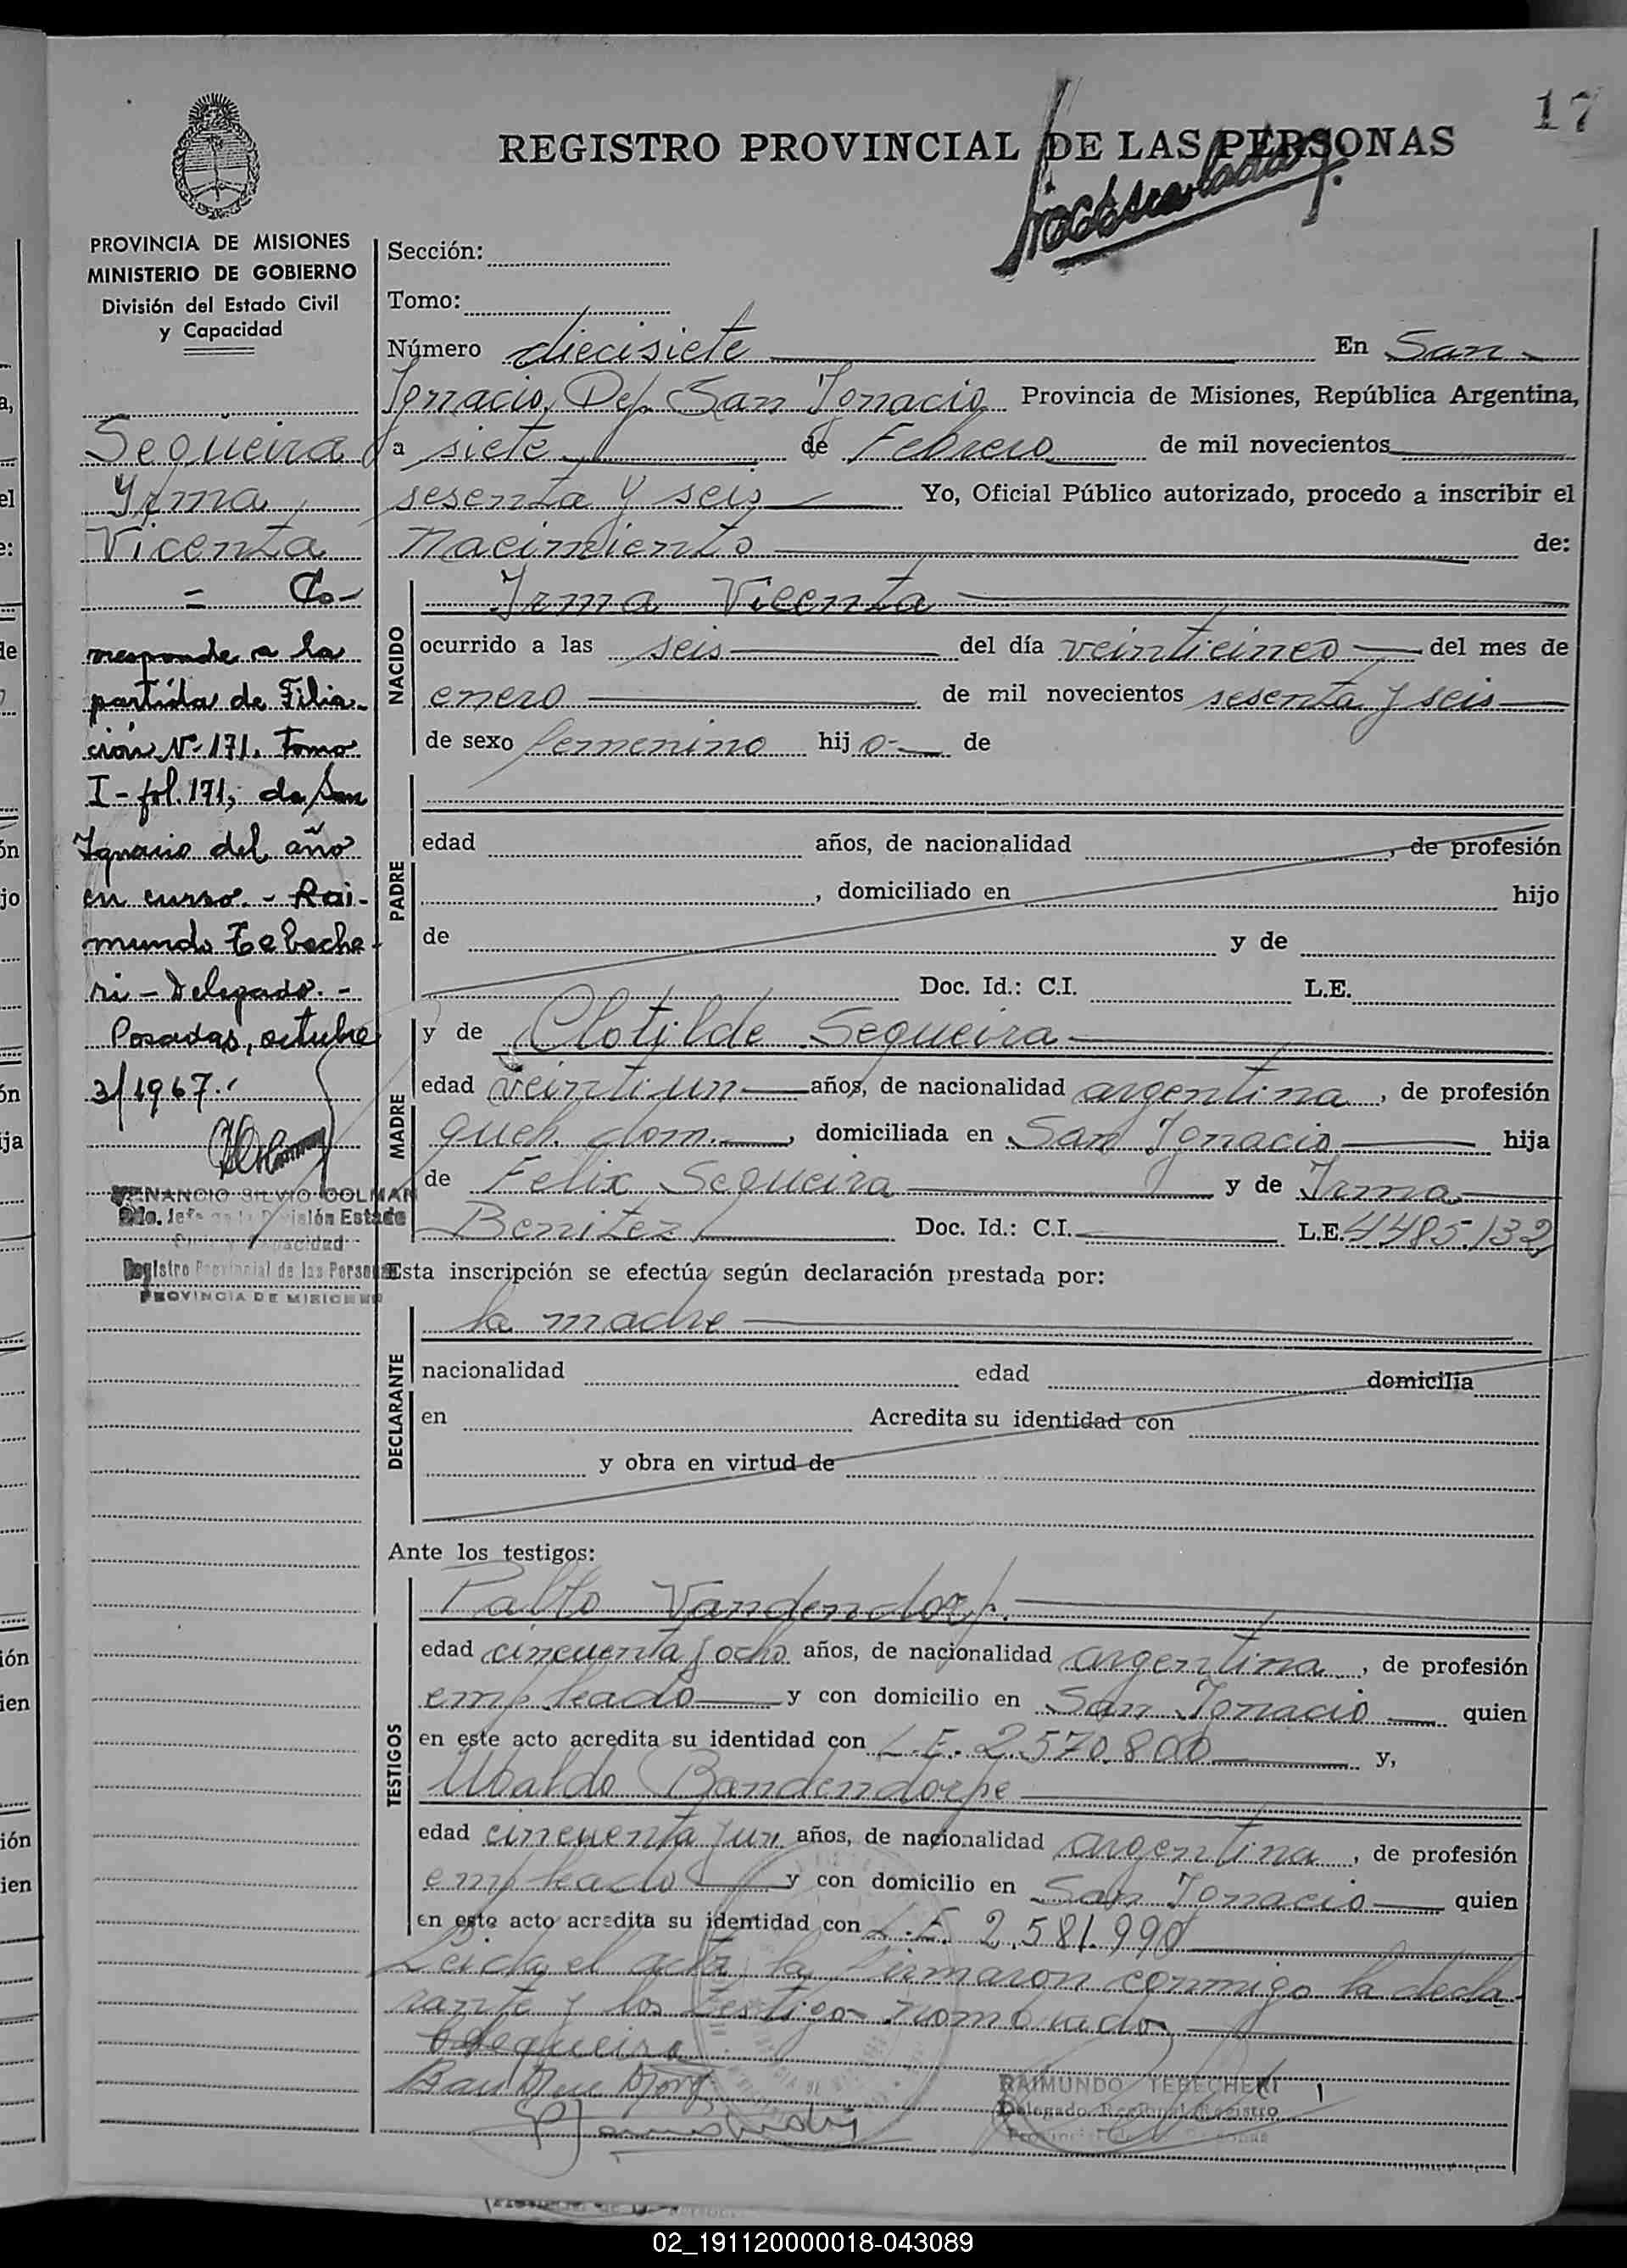 17
REGISTRO PROVINCIAL DE LAS PERSONAS
PROVINCIA DE MISIONES
MINISTERIO DE GOBIERNO
División del Estado Civil
y Capacidad
Sequeira
Irma
Vicenta
= Co-
rresponde a la
partida de Filia-
ción Nº 171. Tomo
I - fol. 171, de San
Ignacio del año
en curso. - Rai-
mundo Tebeche-
ri - Delegado. -
Posadas, octubre
3/1967.
VENANCIO SILVIO COLMAN
2do. Jefe de la División Estado
Civil y Capacidad
Registro Provincial de las Personas
PROVINCIA DE MISIONES
Sección:
Tomo:
Número diecisiete En San
Ignacio, Dep. San Ignacio Provincia de Misiones, República Argentina,
a siete de Febrero de mil novecientos
sesenta y seis Yo, Oficial Público autorizado, procedo a inscribir el
nacimiento de:
NACIDO
Irma Vicenta
ocurrido a las seis del día veinticinco del mes de
enero de mil novecientos sesenta y seis
de sexo femenino hij a de
PADRE
edad años, de nacionalidad , de profesión
, domiciliado en hijo
de y de
Doc. Id.: C.I. L.E.
MADRE
y de Clotilde Sequeira
edad veintiun años, de nacionalidad argentina, de profesión
queh. dom. , domiciliada en San Ignacio hija
de Felix Sequeira y de Irma
Benitez Doc. Id.: C.I. L.E. 4485.132
Esta inscripción se efectúa según declaración prestada por:
DECLARANTE
la madre
nacionalidad edad domicilia
en Acredita su identidad con
y obra en virtud de
Ante los testigos:
TESTIGOS
Pablo Vandendorp.
edad cincuenta y ocho años, de nacionalidad argentina, de profesión
empleado y con domicilio en San Ignacio quien
en este acto acredita su identidad con L.E. 2.570.800 y,
Ubaldo Bandendorpe
edad cincuenta y un años, de nacionalidad argentina, de profesión
empleado y con domicilio en San Ignacio quien
en este acto acredita su identidad con L.E. 2.581.990
Leida el acta, la firmaron conmigo la decla-
rante y los testigos nombrados
Sequeira
RAIMUNDO TEBECHERI
Delegado Regional Registro
Provincial de las Personas
02_191120000018-043089